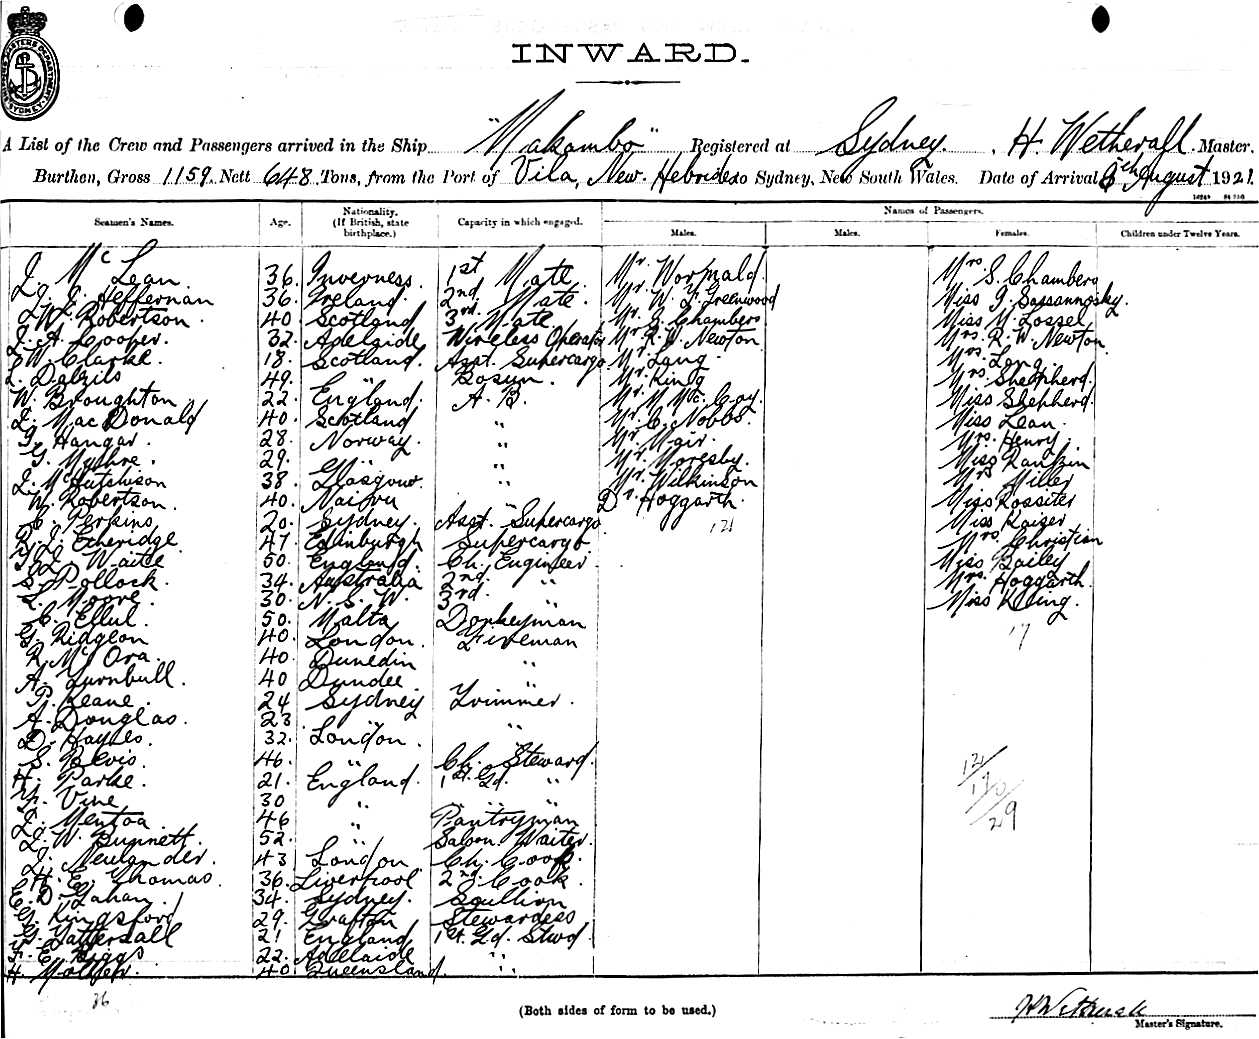 INWARD.
A List of the Crew and Passengers arrived in the Ship "Makambo" Registered at Sydney. H. Wetherall Master,
Burthen, Gross 1159. Nett 648. Tons, from the Port of Vila, New Hebrides to Sydney, New South Wales. Date of Arrival 5th August 1921
Seamen's Names. Age. Nationality. (If British, state birthplace.) Capacity in which engaged. Names of Passengers.
Males. Males. Females. Children under Twelve Years.
J. McLean 36. Inverness. 1st Mate Mr. Wormald Mrs S. Chambers
J. J. Heffernan 36. Ireland. 2nd Mate. Mr. W. F. Greenwood Miss
W. Robertson. 40. Scotland 3rd Mate Mr. Chambers Miss M. Lossel
J. A. Cooper. 32. Adelaide Wireless Operator Mr. R. W. Newton Mrs. R. W. Newton
W. Clarke. 18. Scotland. Asst. Supercargo. Mr. Lang. Mrs. Long.
Dalzils 49. " Bosun. Mr. King Mrs. Shepherd.
W. Broughton. 22. England. A. B. Mr. M. McCoy Miss Shepherd.
MacDonald 40. Scotland " Mr. C. Nobbs. Miss Lean.
Hangar. 28. Norway. " Mr. Mair. Mrs. Henry.
G. Mythre. 29. " " Mr. Moresby. Miss Rankin
J. McHutchison 38. Glasgow. " Mr. Wilkinson Mrs Miller
W. Robertson. 40. Nairn " Dr. Hoggarth. Miss Rossiter
C. Perkins 20. Sydney. Asst. Supercargo 12 Miss Kaiser
Etheridge 47. Edinburgh Supercargo. Mrs. Christian
Waite 50. England. Ch. Engineer Miss Bailey
S. Pollock. 34. Australia 2nd. " Mrs. Hoggarth.
L. Moore. 30. N. S. W. 3rd. " Miss Kling.
C. Ellul. 50. Malta Donkeyman 17
G. Ridgeon 40. London. Fireman
R. McOra. 40. Dunedin "
A. Turnbull. 40 Dundee "
P. Keane. 24. Sydney Trimmer.
A. Douglas. 23. " "
D. Hayles. 32. London. "
S. Bevis. 46. " Ch. Steward.
H. Parke. 21. England. 1st Gd. "
Vine 30 " "
Mentoa. 46 " Pantryman
J. W. Bunnett. 52. " Saloon Waiter
J. Neulander. 43 London Ch. Cook.
H. E. Thomas. 36. Liverpool 2nd Cook.
E. D. Gahan. 34. Sydney. Scullion
G. Kingsford 29. Grafton Stewardess
G. Tattersall 21 England 1st. Gd. Stwd.
F. E. Biggs 22. Adelaide "
H. 40. Queensland. "
12
17
29
36
(Both sides of form to be used.)
H Wetherall
Master's Signature.